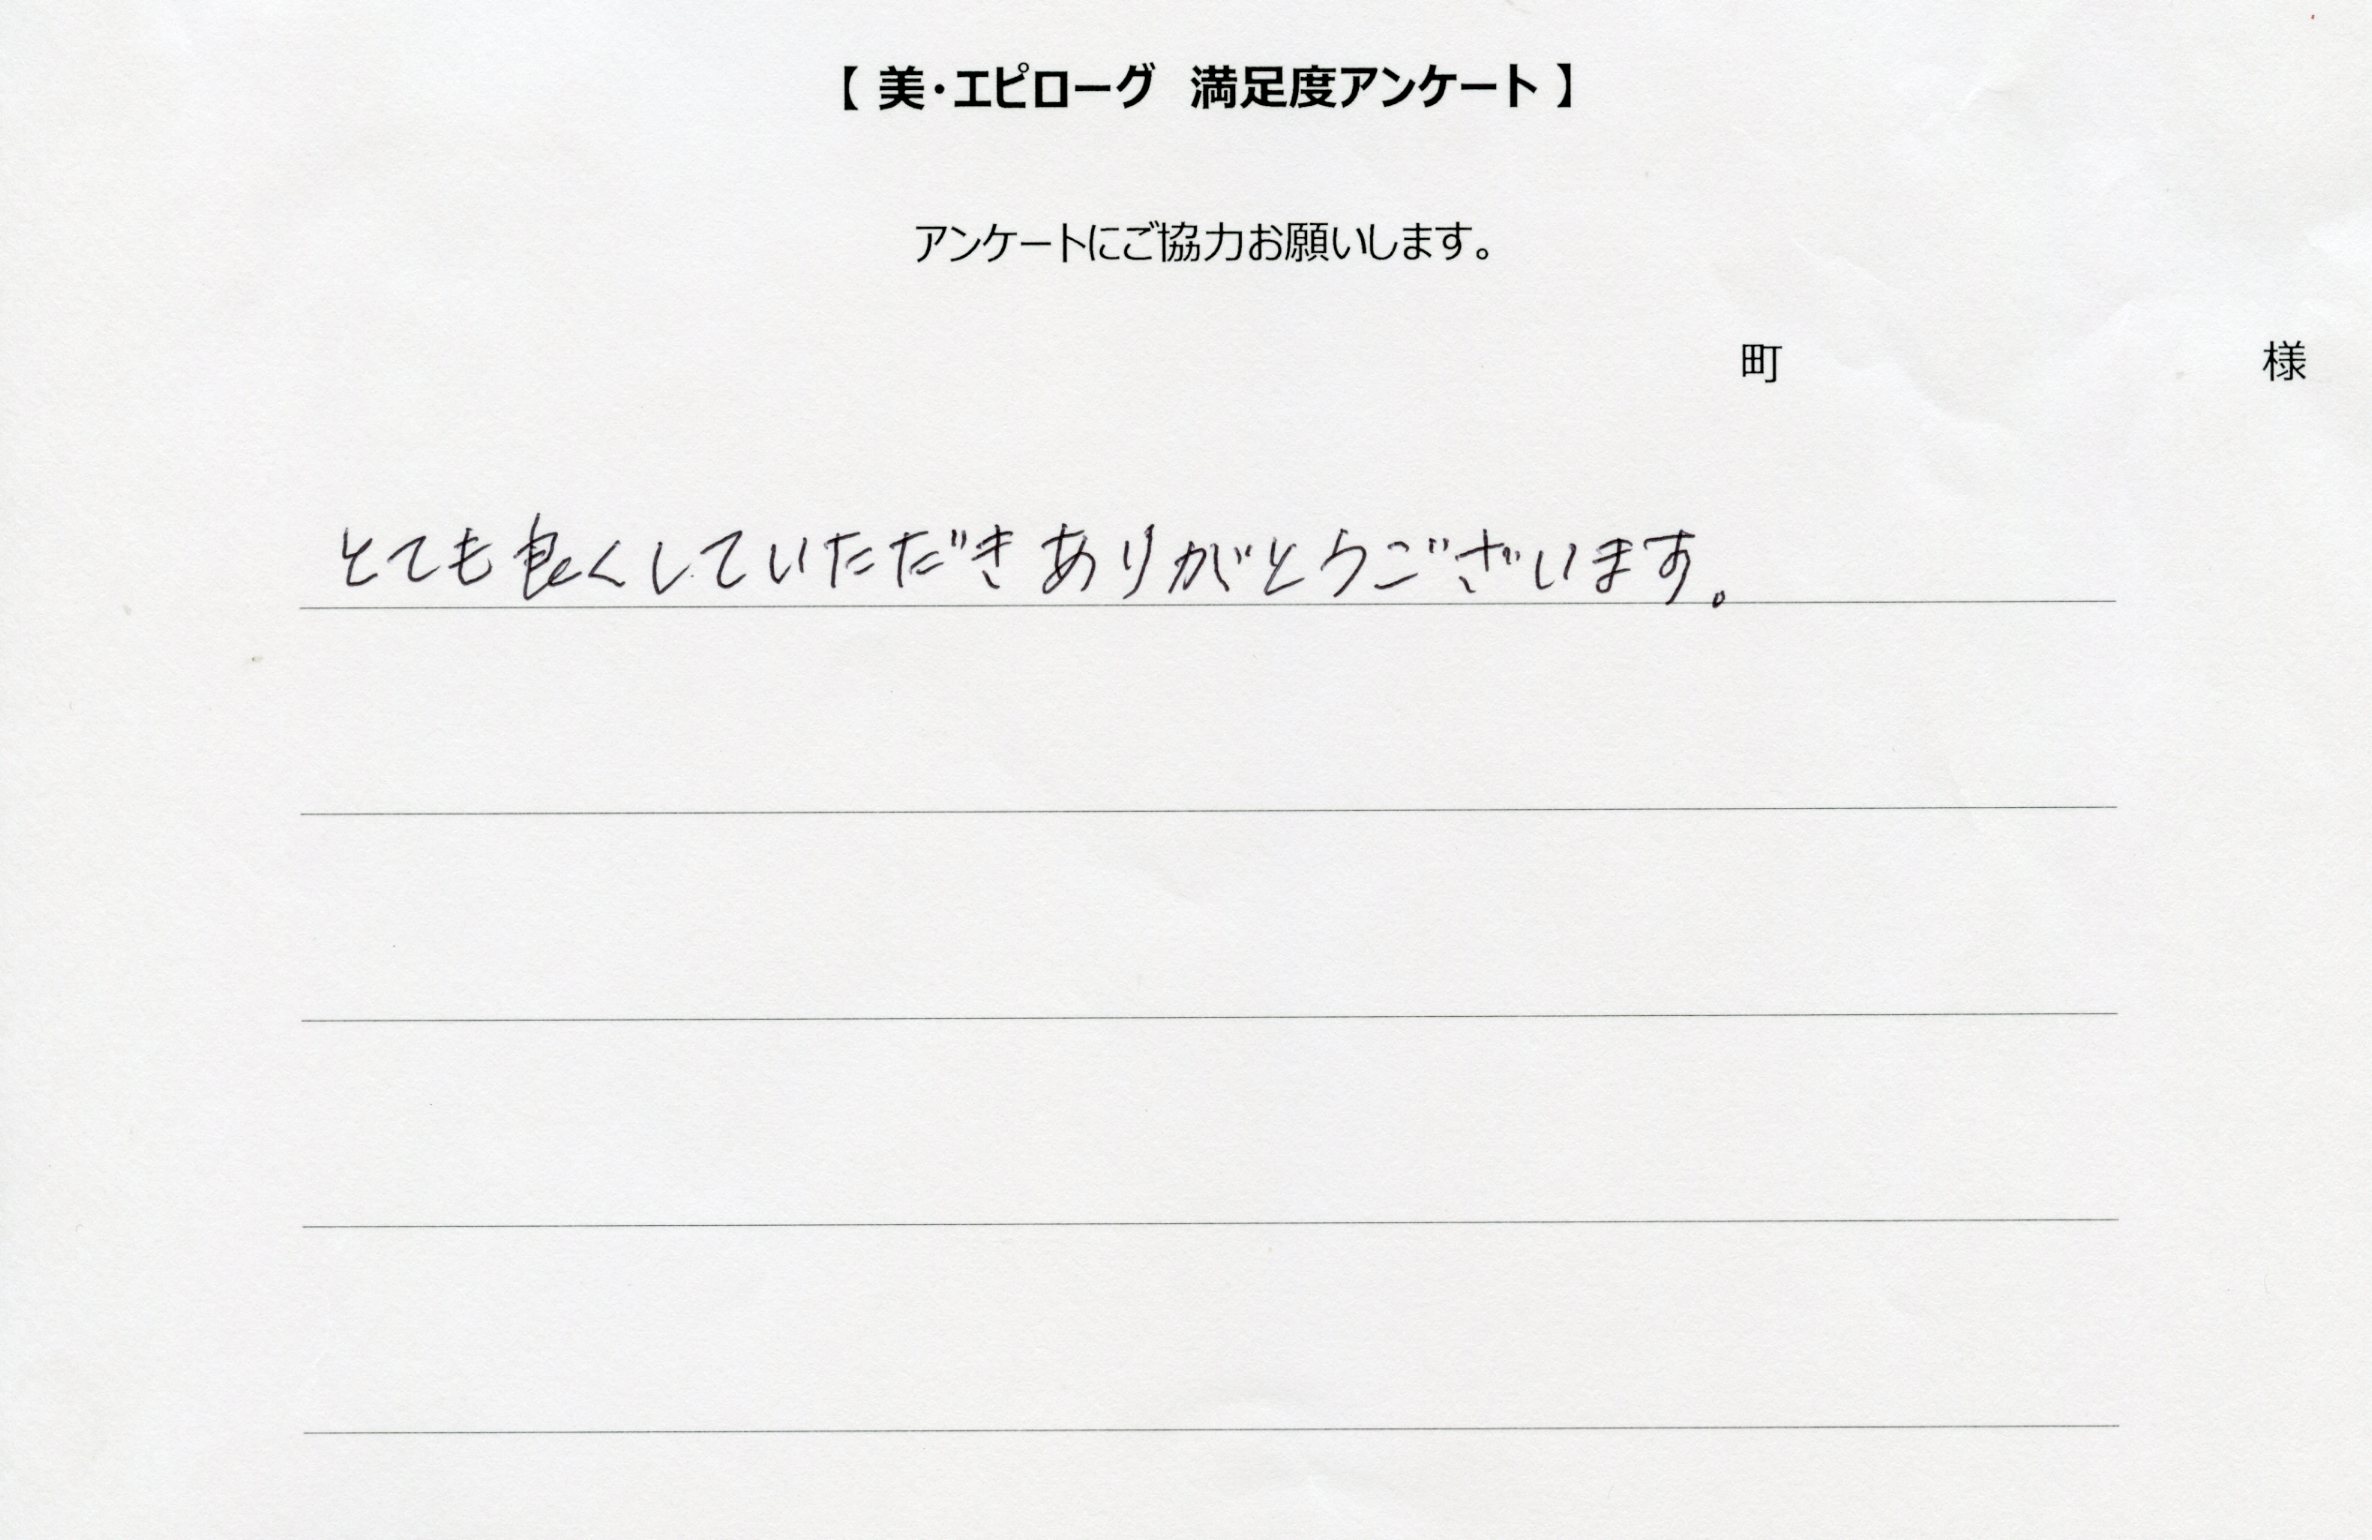 【 美・エピローグ　満足度アンケート 】
アンケートにご協力お願いします。
町　様
とても良くしていただきありがとうございます。